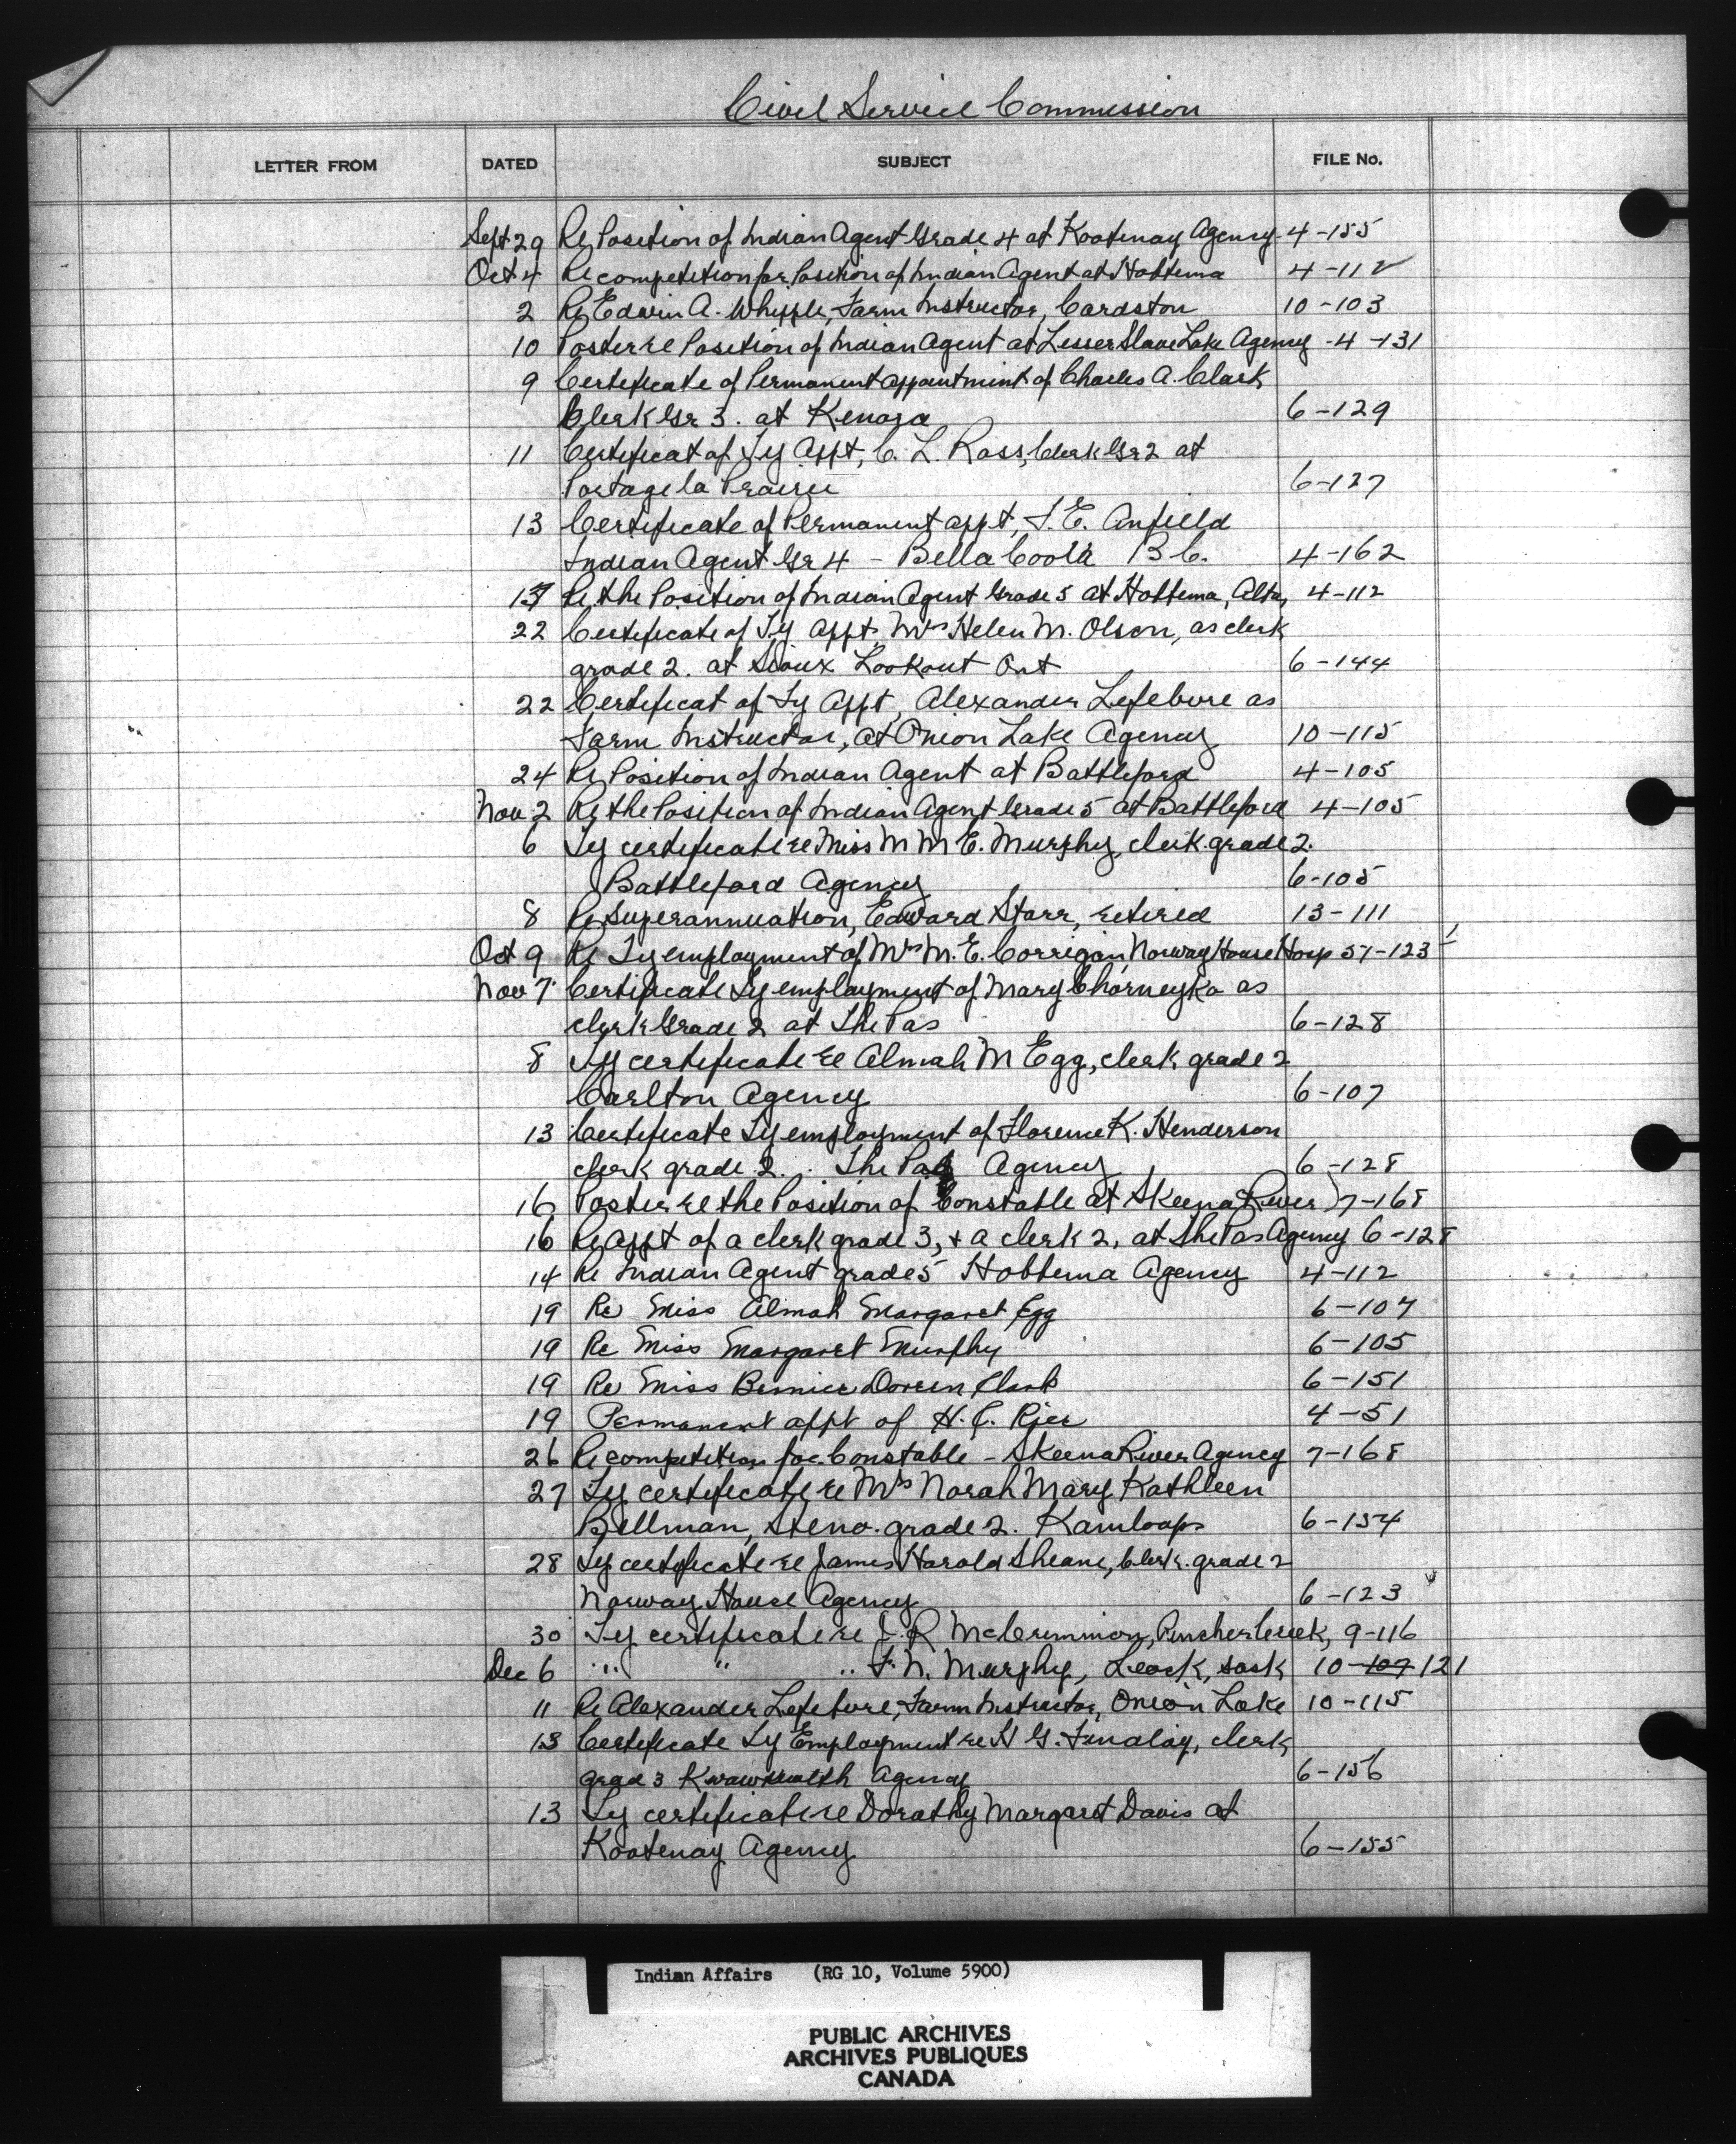 Civil Service Commission
LETTER FROM DATED SUBJECT FILE No.
Sept 29 Re Position of Indian Agent Grade 4 at Kootenay Agency 4-155
Oct 4 Re competition for Position of Indian Agent at Hobbema 4-112
2 Re Edwin A. Whipple, Farm Instructor, Cardston 10-103
10 Poster re Position of Indian Agent at Lesser Slave Lake Agency -4-131
9 Certificate of Permanent appointment of Charles A. Clark
Clerk Gr 3. at Kenora 6-129
11 Certificat of Ty Appt, C. L. Ross, Clerk Gr 2 at
Portage la Prairie 6-127
13 Certificate of Permanent appt, F. E. Anfield
Indian Agent Gr 4 - Bella Coola B C. 4-162
Re the Position of Indian Agent Grade 5 at Hobbema, Alta, 4-112
22 Certificate of Ty Appt, Mrs Helen M. Olson, as clerk
grade 2. at Sioux Lookout Ont 6-144
22 Certificat of Ty Appt, Alexander Lefebvre as
Farm Instructor, at Onion Lake Agency 10-115
24 Re Position of Indian Agent at Battleford 4-105
Nov 2 Re the Position of Indian Agent Grade 5 at Battleford 4-105
6 Ty certificate re Miss M M E. Murphy, clerk grade 2.
Battleford Agency 6-105
8 Re Superannuation, Edward Starr, retired 13-111
Oct 9 Re Ty employment of Mrs M. E. Corrigan, Norway House Hosp 51-123
Nov 7 Certificate Ty employment of Mary Chorneyko as
clerk Grade 2 at The Pas 6-128
8 Ty certificate re Almah M Egg, clerk grade 2
Carlton Agency 6-107
13 Certificate Ty employment of Florence K. Henderson
clerk grade 2. The Pas Agency 6-128
16 Poster re the Position of Constable at Skeena River 7-168
16 Re Appt of a clerk grade 3, + a clerk 2, at The Pas Agency 6-128
14 Re Indian Agent grade 5 Hobbema Agency 4-112
19 Re Miss Almah Margaret Egg 6-107
19 Re Miss Margaret Murphy 6-105
19 Re Miss Bernice Doreen Clark 6-151
19 Permanent appt of H. C. Rice 4-51
26 Re competition for Constable - Skeena River Agency 7-168
27 Ty certificate re Mrs Norah Mary Kathleen
Bellman, Steno. grade 2. Kamloops 6-154
28 Ty certificate re James Harold Sheane, Clerk. grade 2
Norway House Agency 6-123
30 Ty certificate re J. R McCrimmon, Pincher Creek, 9-116
Dec 6 " " " F. N. Murphy, Leask, Sask 10-109 121
11 Re Alexander Lefebvre, Farm Instructor, Onion Lake 10-115
13 Certificate Ty Employment re H G. Findlay, clerk
grad 3 Kwawkewlth Agency 6-156
13 Ty certificate re Dorothy Margaret Davis at
Kootenay Agency 6-155
Indian Affairs (RG 10, Volume 5900)
PUBLIC ARCHIVES
ARCHIVES PUBLIQUES
CANADA